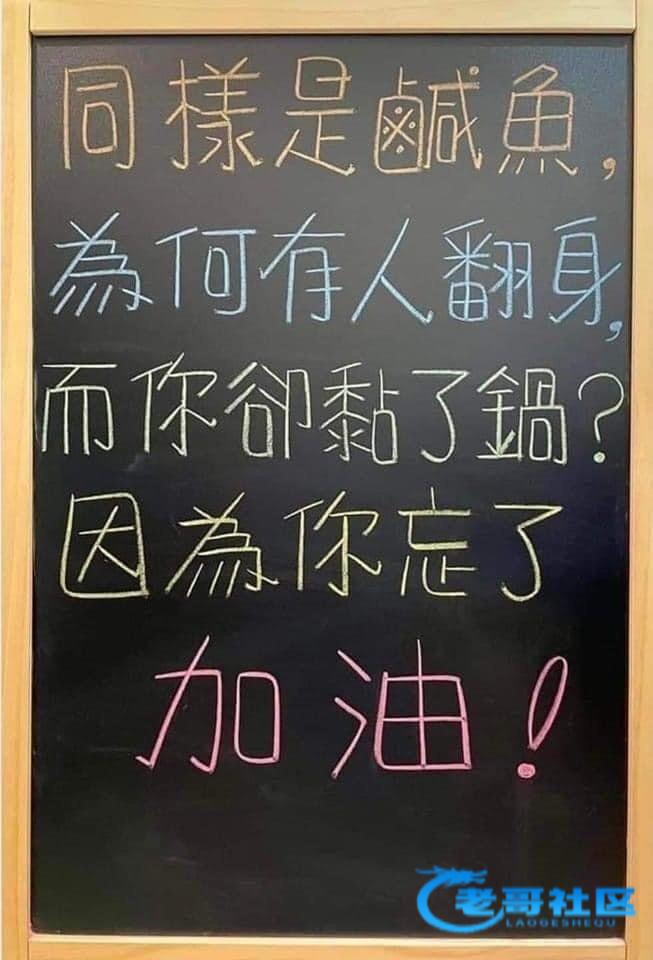 同樣是鹹魚,
為何有人翻身,
而你卻黏了鍋?
因為你忘了
加油!
老哥社区
LAOGESHEQU